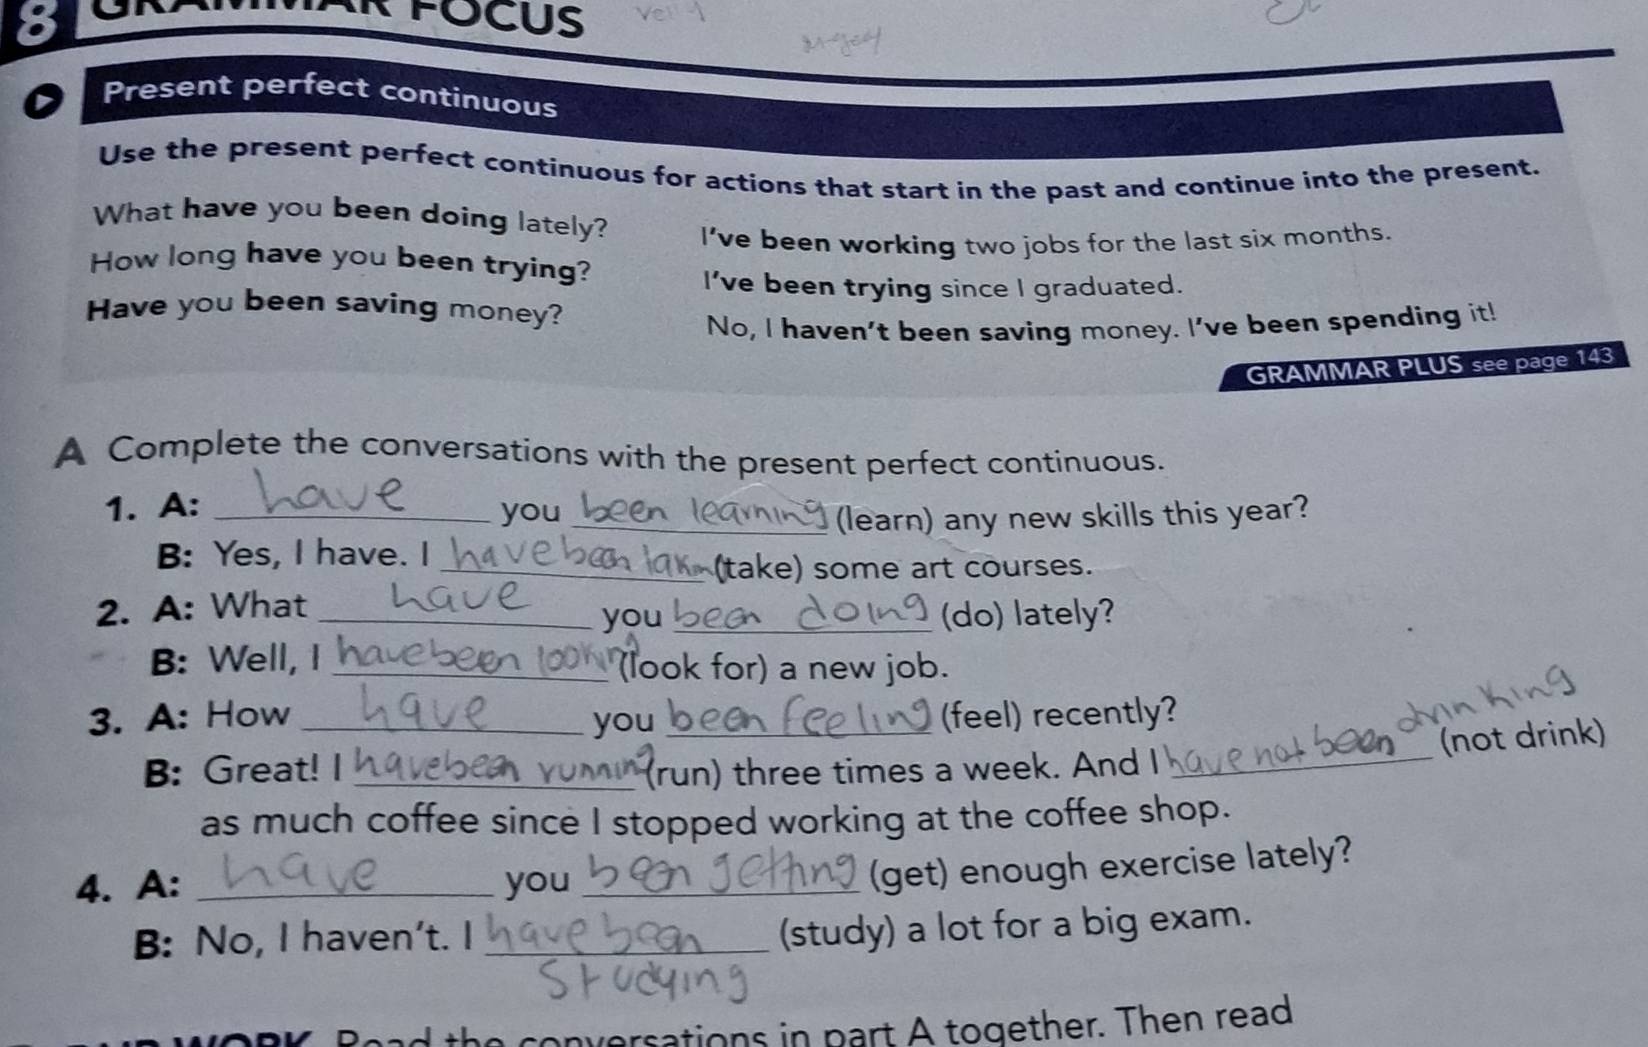 8 GRAMMAR FOCUS
Present perfect continuous
Use the present perfect continuous for actions that start in the past and continue into the present.
What have you been doing lately? I've been working two jobs for the last six months.
How long have you been trying? I've been trying since I graduated.
Have you been saving money? No, I haven't been saving money. I've been spending it!
GRAMMAR PLUS see page 143
A Complete the conversations with the present perfect continuous.
1. A: have you been learning (learn) any new skills this year?
B: Yes, I have. I have been (take) some art courses.
2. A: What have you been doing (do) lately?
B: Well, I have been looking (look for) a new job.
3. A: How have you been feeling (feel) recently?
B: Great! I have been running (run) three times a week. And I have not been drinking (not drink)
as much coffee since I stopped working at the coffee shop.
4. A: have you been getting (get) enough exercise lately?
B: No, I haven't. I have been (study) a lot for a big exam.
studying
WORK Read the conversations in part A together. Then read